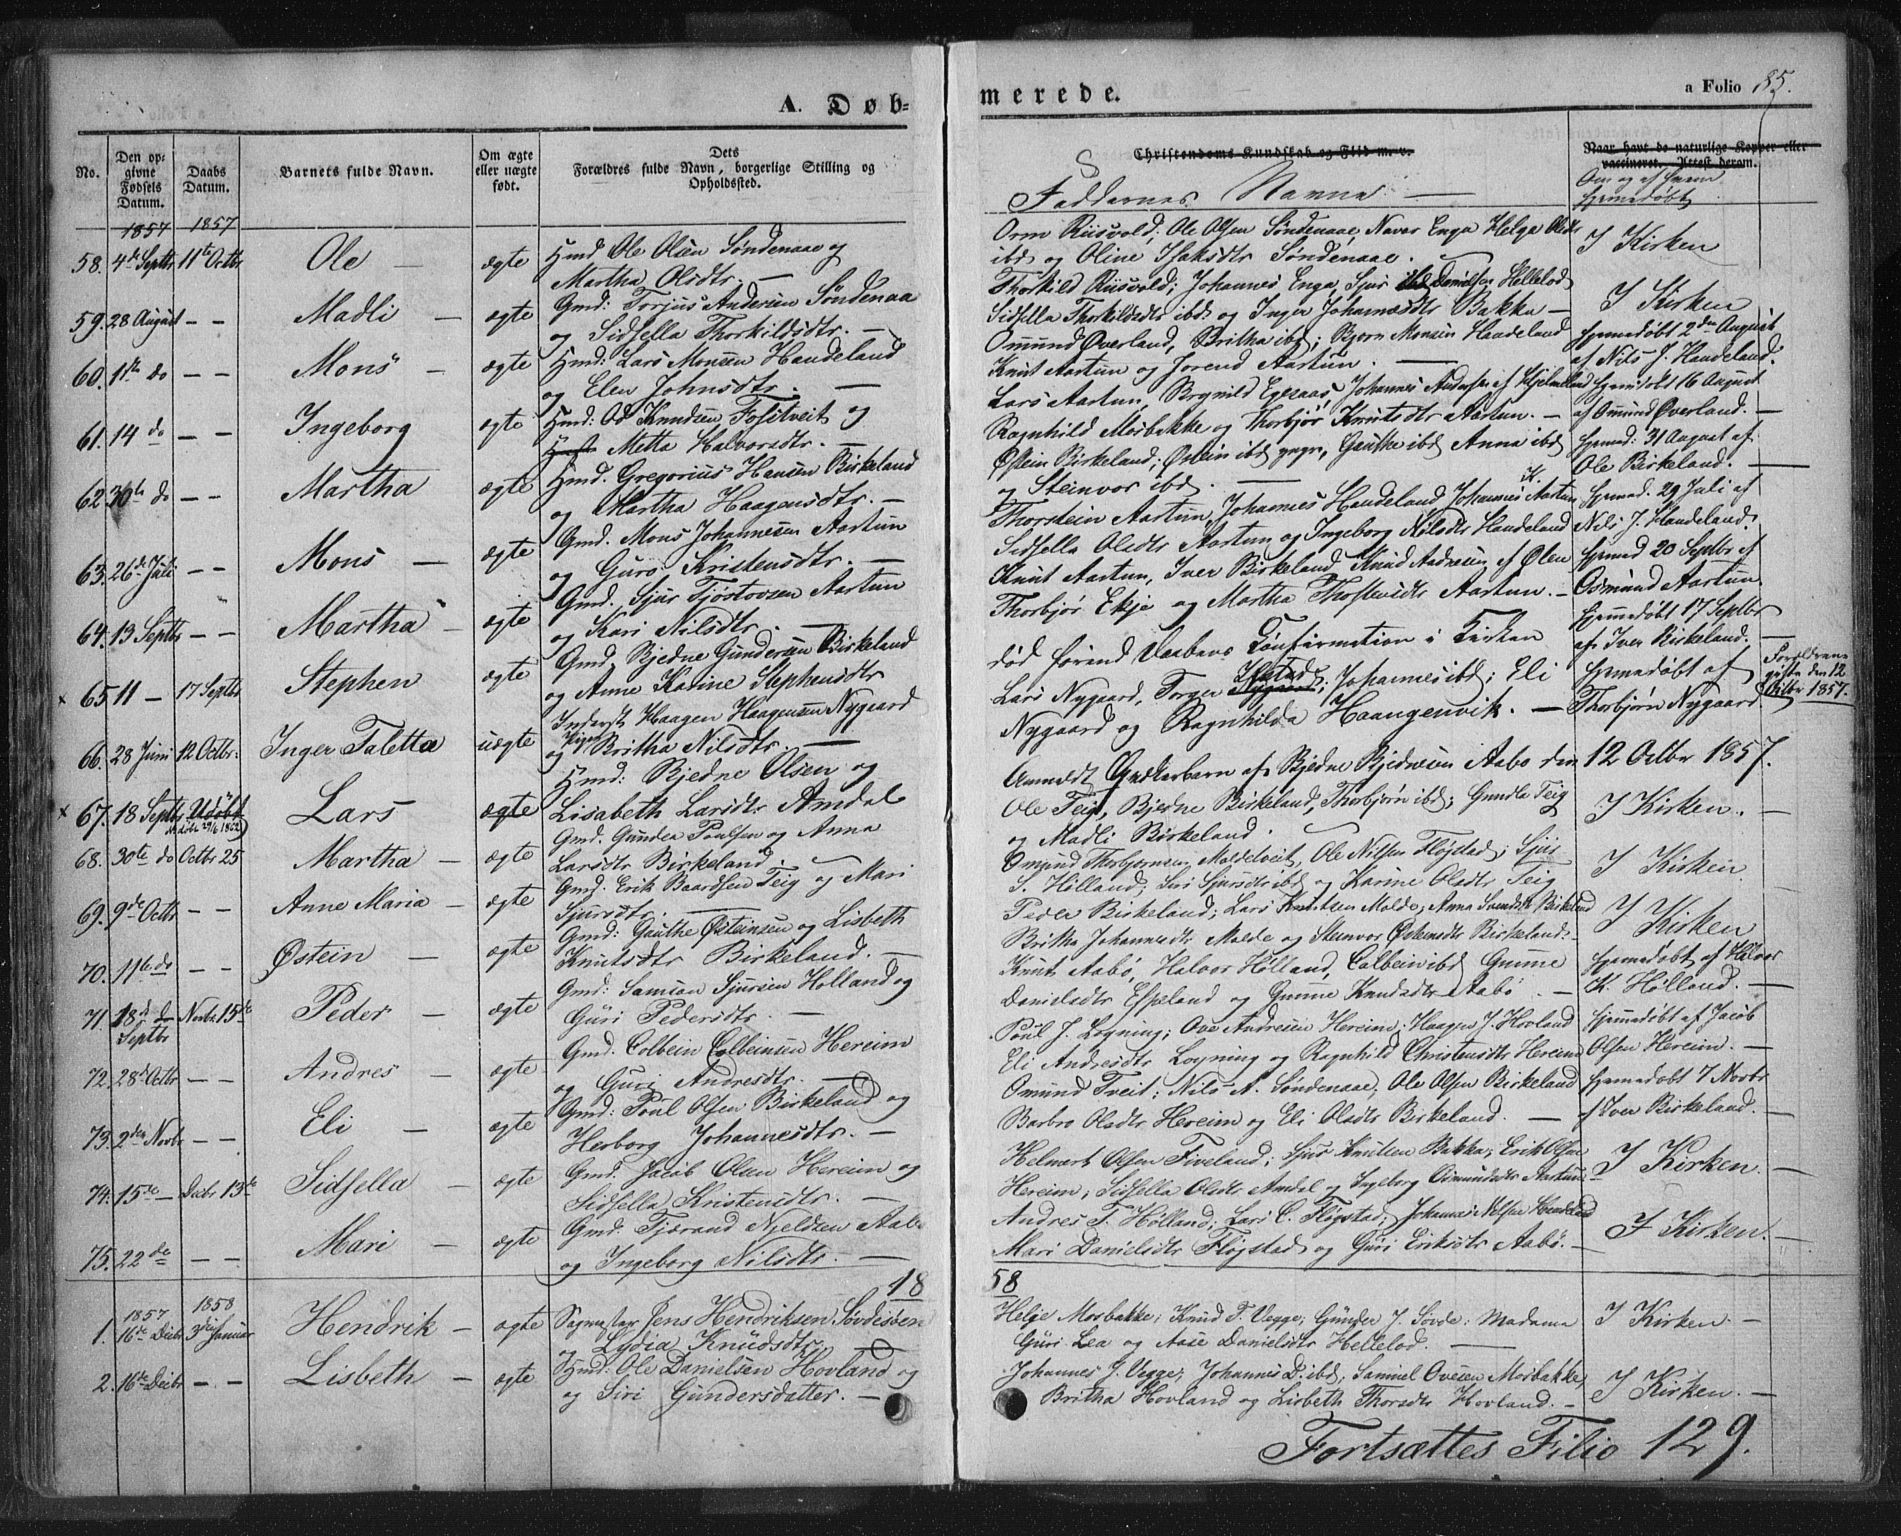 A. Døb=
merede.
a Folio 85.
No.
Den op=
givne
Fødsels
Datum.
Daabs
Datum.
Barnets fulde Navn.
Om ægte
eller uægte
født.
Dets
Forældres fulde Navn, borgerlige Stilling og
Opholdssted.
Christendoms Kundskab og Flid m. v.
Faddernes Navne —
Naar havt de naturlige Kopper eller
vaccineret. Attest derom.
Om og af hvem
hjemmedøbt
1857 1857
58. 4de Septbr 11te Octbr Ole — ægte Gmd Ole Olsen Søndenaae og
Martha Olsdtr. —
Orm Riisvold; Ole Olsen Søndenaae, Naver Enga Helga Olsdtr
ibd og Oline Isaksdtr Søndenaae. I Kirken
59. 28 August — — Madli — ægte Gmd: Torjus Andersen Søndenaa
og Sidsella Thorkildsdtr. —
Thorkild Riisvold; Johannes Enga, Sjur Danielsen Hellelod
Sidsella Thorkildsdtr ibd og Inger Johannesdtr Bakka — I Kirken
60. 11te do — — Mons — ægte Gmd: Lars Monsen Handeland
og Elen Johnsdtr. —
Omund Øverland, Britha ibd; Bjørn Monsen Haadeland
Knut Aartun og Jorend Aartun. — hjemmedøbt 2den August
af Nils J. Handeland.
61. 14 do — — Ingeborg ægte Gmd: Od Knudsen Fositveit og
Metta Halvorsdtr. —
Lars Aartun, Brynild Egeraas, Johannes Andersen af Hjelmeland
Ragnhild Mosbakke og Thorbjør Knutsdtr Aartun. — hjemdøbt 16 August
af Omund Øverland. —
62. 30te do — — Martha ægte Gmd. Gregorius Hansen Birkeland
og Martha Haagensdtr. —
Østein Birkeland; Østein ibd yngr, Gauthe ibd Anna ibd
og Steinvor ibd. — hjemmed: 31 August af
Ole Birkeland. —
63. 26de Juli — — Mons — ægte Gmd. Mons Johannesen Aartun
og Guro Kristensdtr. —
Thorstein Aartun, Johannes Handeland Johannes K. Aartun
Sidsella Olsdtr Aartun og Ingeborg Nilsdtr Handeland hjemmed. 29 Juli af
Nils J. Handeland.
64. 13 Septbr — — Martha — ægte Gmd. Sjur Tjøstovsen Aartun
og Kari Nilsdtr. —
Knut Aartun, Iver Birkeland, Knud Andresen af Ølen
Thorbjør Ekje og Martha Thostensdtr Aartun. — hjemmed 20 Septbr af
Osmund Aartun
65. 11 — 17 Septbr Stephen ægte Gmd. Bjedne Gundersen Birkeland
og Anne Karine Stephensdtr
død førend Daabens Confirmation i Kirken hjemmedøbt 17 Septbr
af Iver Birkeland. —
66. 28 Juni 12 Octbr: Inger Taletta uægte Inderst Haagen Haagensen Nygaard
og Pigen Britha Nilsdtr. —
Lars Nygaard, Torger Nygaard; Johannes ibd; Eli
Nygaard og Ragnhilda Haangenvik. — hjemmedøbt af
Thorbjørn Nygaard
Forældrene
gifte den 12
Octbr 1857.
67. 18 Septbr Udøbt Lars ægte Gmd: Bjedne Olsen og
Lisabeth Larsdtr Amdal
Anmeldt Qvækerbarn af Bjedne Bjednesen Aabo den 12 Octbr 1857.
68. 30te do Octbr 25 Martha — ægte Gmd. Gunder Poulsen og Anna
Larsdtr Birkeland.
Ole Teig, Bjedne Birkeland, Thorbjørn ibd; Gunda Teig
og Madli Birkeland. I Kirken. —
69. 9de Octbr — — Anne Maria — ægte Gmd. Erik Baardsen Teig og Mari
Sjursdtr. —
Omund Thorbjørnsen Maldetveit, Ole Nilsen Fløgstad; Sjur
S. Hilland; Siri Sjursdtr ibd og Karine Olsdtr Teig I Kirken
70. 11te do — — Østein — ægte Gmd: Gauthe Østeinsen og Lisbeth
Knutsdtr Birkeland. —
Peder Birkeland; Lars Knutsen Molde; Anna Svendsdtr Birkeland
Britha Johannesdtr Malde og Steinvor Østensdtr Birkeland. I Kirken
71. 18de Septbr Novbr. 15de Peder — ægte Gmd: Samson Sjursen Holland og
Guri Pedersdtr. —
Knut Aabø, Halvor Hølland, Colbein ibd Gunne
Danielsdtr Espeland og Gunne Knudsdtr Aabø. — hjemmedøbt af Halvor
K. Hølland. —
72. 28de Octbr — — Andres — ægte Gmd. Colbein Colbeinsen Hereim
og Guri Andresdtr. —
Poul J. Løgning; Ove Andresen Hereim; Haagen J. Hovland
Eli Andresdtr Løgning og Ragnhild Christensdtr Hereim hjemmedøbt af Jacob
Olsen Hereim. —
73. 2den Novbr — — Eli — ægte Gmd: Poul Olsen Birkeland og
Herborg Johannesdtr. —
Omund Tveit; Nils A. Søndenaae, Ole Olsen Birkeland
Barbro Olsdtr Hereim og Eli Olsdtr Birkeland. — hjemmedøbt 7 Novbr
af Iver Birkeland. —
74. 15de — Decbr 13de Sidsella — ægte Gmd. Jacob Olsen Hereim og
Sidsella Kristensdtr. —
Helmert Olsen Fiveland; Sjur Knutsen Bakka; Erik Olsen
Hereim; Sidsella Olsdtr Amdal og Ingeborg Osmundsdtr Aartun I Kirken. —
75. 22de — — Mari — ægte Gmd. Tjørand Njeldsen Aabø
og Ingeborg Nilsdtr. —
Andres T. Hølland; Lars C. Fløgstad; Johannes Nilsen Handeland
Mari Danielsdtr Fløgstad og Guri Eriksdtr Aabø. — I Kirken. —
18 58
1857 1858
1. 16de Decbr 3die Januar Hendrik — ægte Sagmester Jens Hendriksen Søvdesøen
Lydia Knudsdtr.
Helje Mosbakke; Knud T. Vegge; Gunder J. Søvde; Madama
Guri Lea og Aase Danielsdtr Hellelod. — I Kirken. —
2. 16de Decbr — — Lisbeth — ægte Gmd: Ole Danielsen Hovland og
og Siri Gundersdatter. —
Johannes J. Vegge; Johannes D. ibd, Samuel Ovesen Mosbakke,
Britha Hovland og Lisbeth Thorsdtr Hovland. — I Kirken. —
Fortsættes Filio 129.